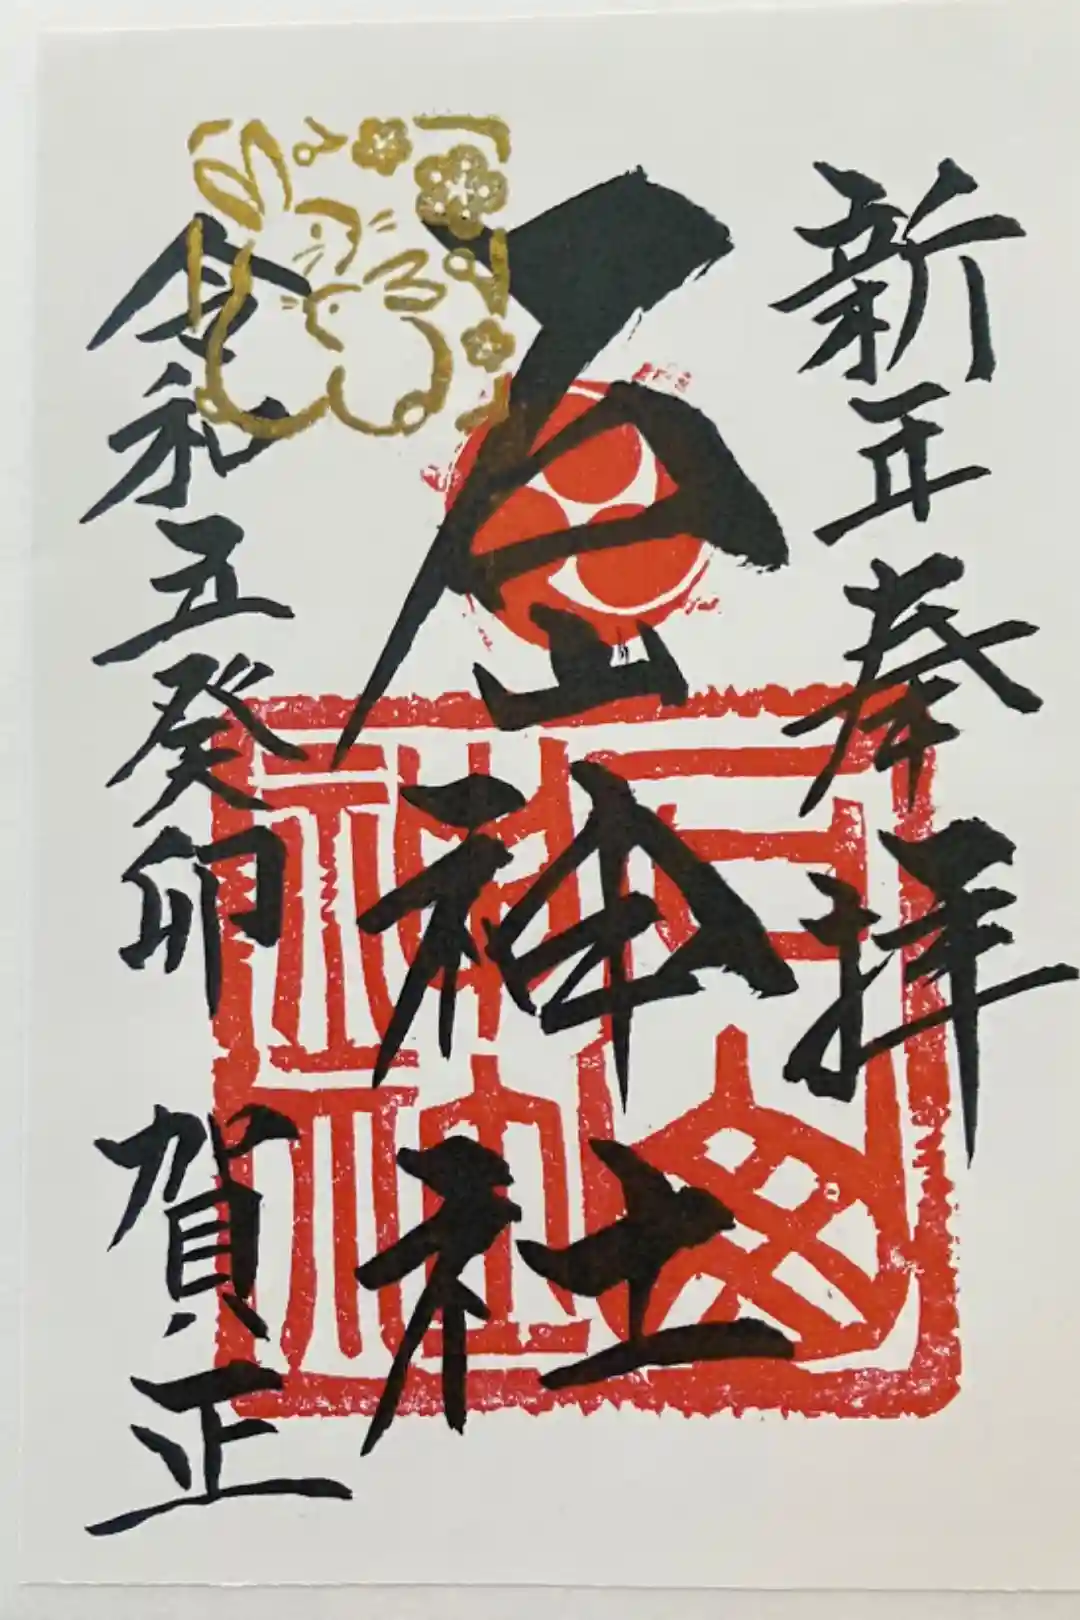 新年奉拝
石山神社
令和五癸卯 賀正